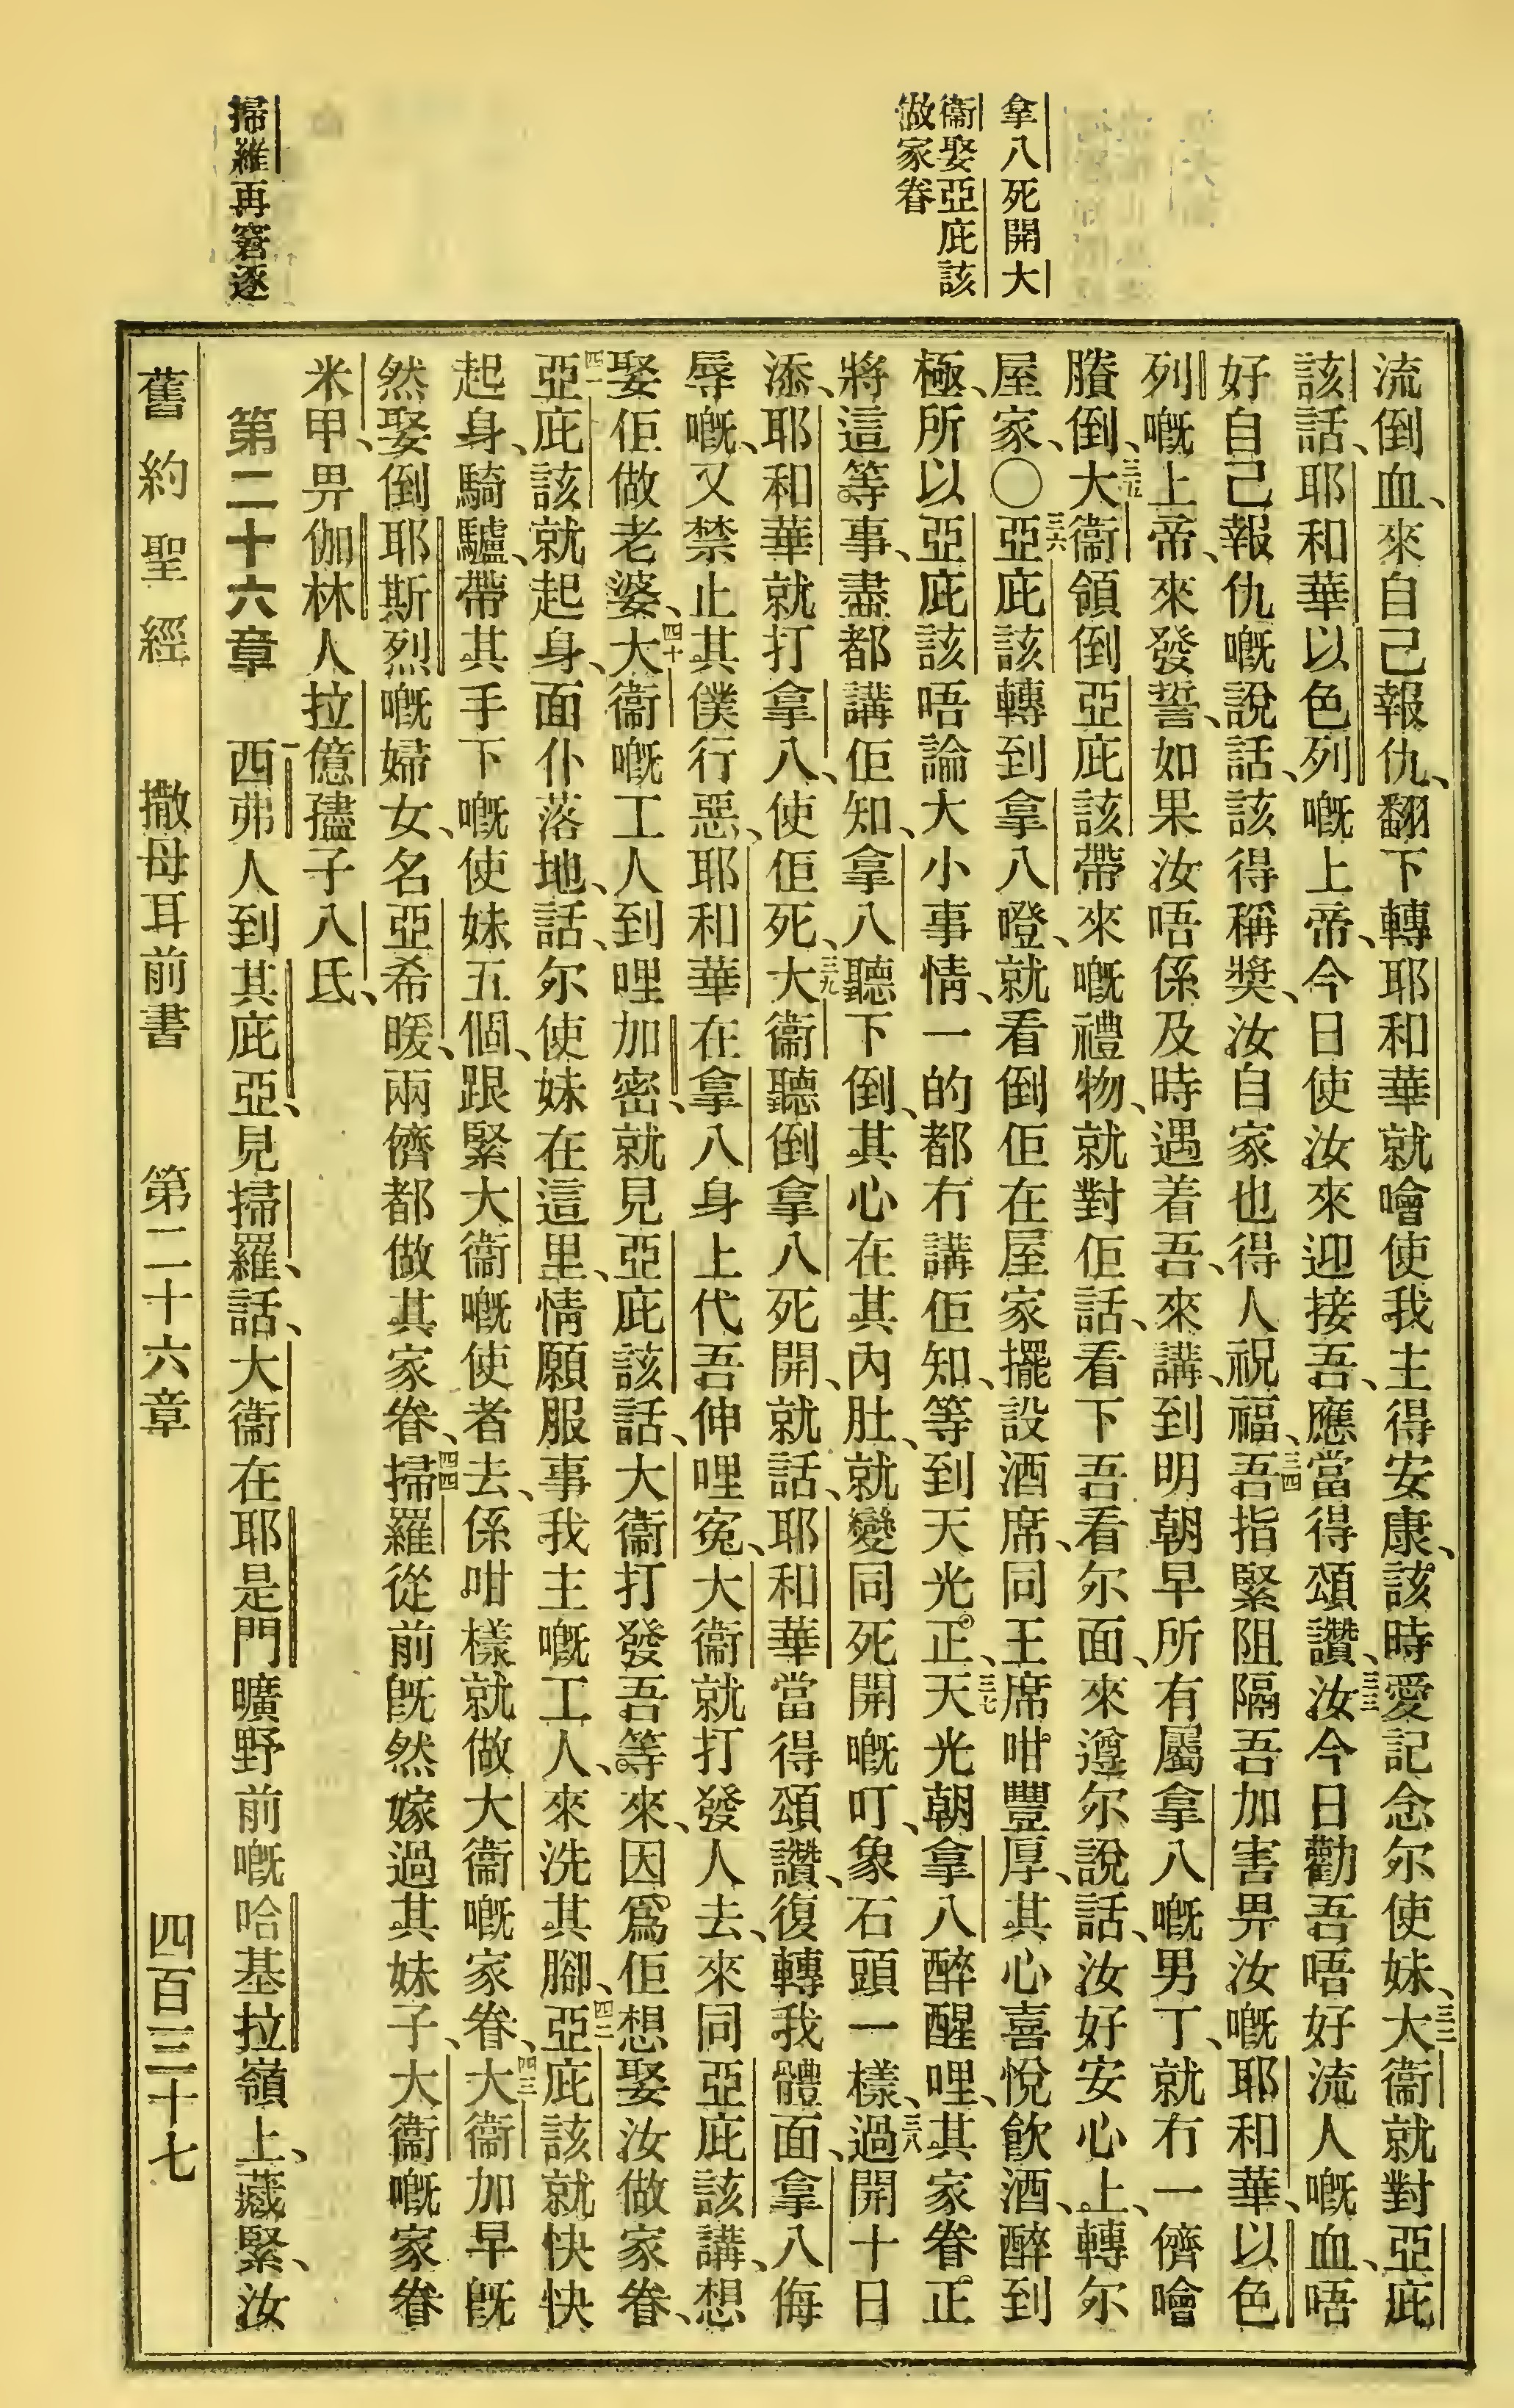 拿八死開大
衞娶亞庇該
做家眷
掃羅再窘逐
流倒血、來自己報仇、翻下轉耶和華就噲使我主得安康、該時愛記念尔使妹、三二大衞就對亞庇
該話、耶和華以色列嘅上帝、今日使汝來迎接吾、應當得頌讚、三三汝今日勸吾唔好流人嘅血、唔
好自己報仇嘅說話、該得稱獎、汝自家也得人祝福、三四吾指緊阻隔吾加害畀汝嘅耶和華、以色
列嘅上帝、來發誓、如果汝唔係及時遇着吾、來講、到明朝早所有屬拿八嘅男丁、就冇一儕噲
賸倒、三五大衞領倒亞庇該帶來嘅禮物、就對佢話、看下吾看尔面、來遵尔說話、汝好安心上、轉尔
屋家、○三六亞庇該轉到拿八嶝、就看倒佢在屋家擺設酒席、同王席咁豐厚、其心喜悅飲酒、醉到
極、所以亞庇該唔論大小事情、一的都冇講佢知、等到天光正、三七天光朝拿八醉醒哩、其家眷正
將這等事、盡都講佢知、拿八聽下倒、其心在其內肚、就變同死開嘅叮、象石頭一樣、三八過開十日
添、耶和華就打拿八、使佢死、三九大衞聽倒拿八死開、就話、耶和華當得頌讚、復轉我體面、拿八侮
辱嘅、又禁止其僕行惡、耶和華在拿八身上代吾伸哩寃、大衞就打發人去、來同亞庇該講、想
娶佢做老婆、四十大衞嘅工人到哩加密、就見亞庇該話、大衞打發吾等來、因爲佢想娶汝做家眷、
四一亞庇該就起身、面仆落地、話、尔使妹在這里、情願服事我主嘅工人、來洗其腳、四二亞庇該就快快
起身、騎驢、帶其手下嘅使妹五個、跟緊大衞嘅使者去、係咁樣就做大衞嘅家眷、四三大衞加早旣
然娶倒耶斯烈嘅婦女、名亞希暖、兩儕都做其家眷、四四掃羅從前旣然嫁過其妹子、大衞嘅家眷
米甲、畀伽林人拉億孻子八氐、
第二十六章 一西弗人到其庇亞、見掃羅、話、大衞在耶是門曠野前嘅哈基拉嶺上、藏緊、汝
舊約聖經 撒母耳前書 第二十六章 四百三十七